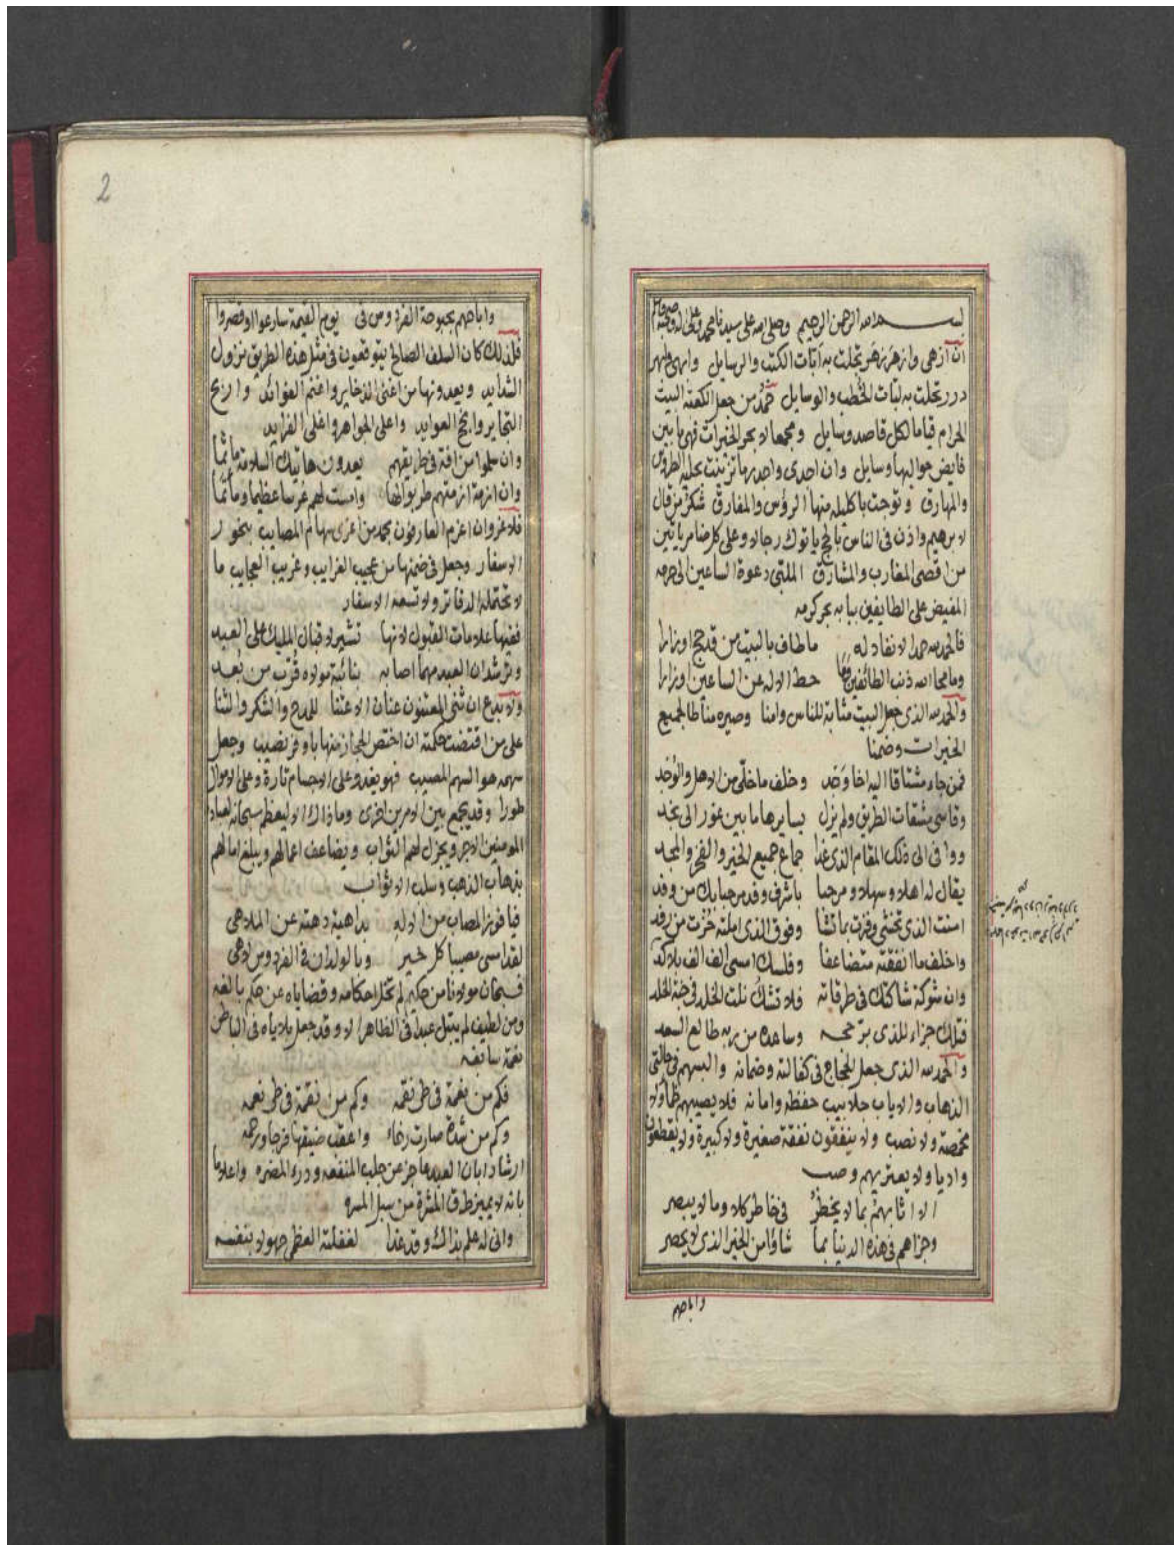 بسم الله الرحمن الرحيم وصلى الله على سيدنا محمد وعلى اله وصحبه وسلم
ان ازهى وازهر زهر تجلت به آيات الكتب والرسايل وابهى وابهر
درر تحلت به لبات الخطب والوسايل حمد من جعل الكعبة البيت
الحرام قياما لكل قاصد وسايل ومجمعا لابحر الخيرات فهي ما بين
فايض حواليها وسايل وان احدى واحد ما تزينت بحليه الطروس
والمهارق وتوجت باكليله منها الرؤس والمفارق شكر من قال
لابرهيم واذن في الناس بالحج ياتوك رجالا وعلى كل ضامر ياتين
من اقصى المغارب والمشارق الملبي دعوة الساعين الى حرمه
المفيض على الطايفين ببابه بحر كرمه
فالحمد لله حمدا لا نفاد له ما طاف بالبيت من قد حج او زارا
وما محا الله ذنب الطائفين وما حط الاله عن الساعين اوزارا
والحمد لله الذي جعل البيت مثابة للناس وامنا وصيره مناطا لجميع
الخيرات وضمنا
فمن جاء مشتاقا اليه اخا وجد وخلف ما خلى من الاهل والوجد
وقاسى مشقات الطريق ولم يزل يسايرها ما بين غور الى نجد
ووافى الى ذلك المقام الذي غدا جماع جميع الخير والفخر والمجد
يقال له اهلا وسهلا ومرحبا باشرف وفد مرحبا بك من وفد
امنت الذي تخشى وفزت بما تشا وفوق الذي املته حزت من رفد
واخلف ما انفقته متضاعفا وفلسك امسى الف الف بلا كد
وان شوكة شاكتك في طرقاته فلا تشك نلت الخلد في جنة الخلد
فتلك جزاء للذي يرتجي وساعده من ربه طالع السعد
والحمد لله الذي جعل الحجاج في كفالته وضمانه والبسهم في حالتي
الذهاب والاياب جلابيب حفظه وامانه فلا يصيبهم ظمأ ولا
مخمصة ولا نصب ولا ينفقون نفقة صغيرة ولا كبيرة ولا يقطعون
واديا ولا يعتريهم وصب
الا اثابهم بما لا يخطر في خاطر كلا وما لا يبصر
وجزاهم في هذه الدنيا بما شاؤا من الخير الذي لا يحصر
واباحهم
واباحهم بحبوحة الفردوس في يوم القيمة سارعوا او قصروا
فلذلك كان السلف الصالح يتوقعون في مثل هذه الطريق نزول
الشدايد ويعدونها من اغنى الذخاير واغنم الفوائد واربح
التجاير وانجح العوايد واعلى الجواهر واغلى الفرايد
وان سلموا من افة في طريقهم يعدون هاتيك السلامة مأتما
وان ازمة ازمتهم طربوا لها وامست لهم عرسا عظيما ومأتما
فلا غرو ان اغرم العارفون بحمد من اغرى سهام المصايب بنحور
الاسفار وجعل في ضمنها من عجيب الغرايب وغريب العجايب ما
لا تحتمله الدفاتر ولا تسعه الاسفار
ففيها علامات القبول لانها تشير لاقبال المليك على العبد
وترشد ان العبد مهما اصابه بنائبة مولاه قرب من بعد
ولا بدع ان ثنى المعتنون عنان الاعتنا للمدح والشكر والثنا
على من اقتضت حكمته ان اختص الحجاز منها باوفر نصيب وجعل
سهمه هو السهم المصيب فهو يغدو على الاجسام تارة وعلى الاموال
طورا وقد يجمع بين الامرين اخرى وما ذاك الا ليعظم سبحانه لعباده
المومنين الاجر ويجزل لهم الثواب ويضاعف اعمالهم ويبلغ امالهم
بذهاب الذهب وسلب الاثواب
فيا فوز المصاب من الاله بداهية دهته عن الملاهي
لقد امسى مصيبا كل خير وبالولدان في الفردوس لاهي
فسبحان مولانا من حكيم لم تخل احكامه وقضاياه عن حكم بالغه
ومن لطيف لم يبتل عبدا في الظاهر الا وقد جعل بلاياه في الباطن
نعمة سابغه
فكم من نعمة في طي نقمه وكم من نقمة في طي نعمه
وكم من شدة صارت رخاء واعقب ضيقها فرجا ورحمه
ارشادا بان العبد عاجز عن جلب المنفعه ودرء المضره واعلاما
بانه لا يميز طرق المضرة من سبل المسره
وانى له علم بذاك وقد غدا لغفلته العظمى جهولا بنفسه
2